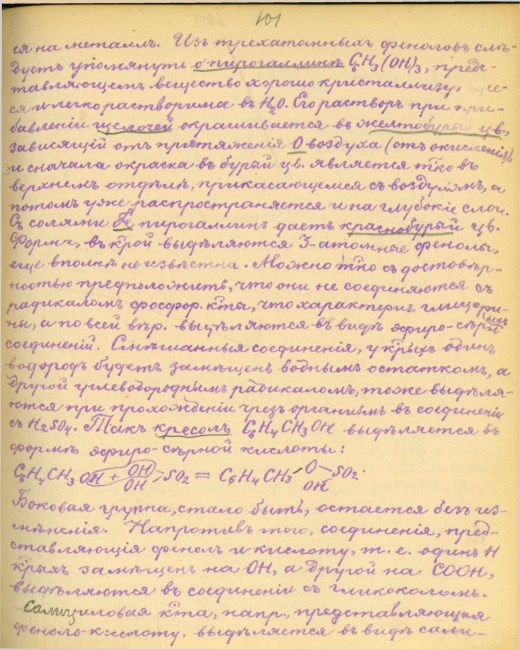 101
ся на металлъ. Изъ трехатомныхъ феноловъ слѣ-
дуетъ упомянуть о пирогаллинѣ C6H3(OH)3, пред-
ставляющемъ вещество хорошо кристаллизующее-
ся и легко растворимое въ H2O. Его растворъ при при-
бавленіи щелочей окрашивается въ желтобурый цв.,
зависящій отъ притяженія O воздуха (отъ окисленія),
и сначала окраска въ бурый цв. является тко въ
верхнемъ отдѣлѣ, прикасающемся съ воздухомъ, а
потомъ уже распространяется и на глубокіе слои.
Съ солями Fe пирогаллинъ даетъ краснобурый цв.
Форма, въ крой выдѣляются 3-атомные фенолы,
еще вполнѣ не извѣстна. Можно тко съ достовѣр-
ностью предположить, что они не соединяются съ
радикаломъ фосфор. кты, что характериз. глицери-
ны, а по всей вѣр. выдѣляются въ видѣ эфиро-сѣрныхъ
соединеній. Смѣшанныя соединенія, у крыхъ одинъ
водородъ будетъ замѣщенъ воднымъ остаткомъ, а
другой углеводороднымъ радикаломъ, тоже выдѣля-
ются при прохожденіи чрезъ организмъ въ соединеніи
съ H2SO4. Такъ кресолъ C6H4CH3OH выдѣляется въ
формѣ эфиро-сѣрной кислоты:
C6H4CH3 OH + OH OH SO2 = C6H4CH3 O OH SO2.
Боковая группа, стало быть, остается безъ из-
мѣненія. Напротивъ того, соединенія, пред-
ставляющія фенолъ и кислоту, т. е. одинъ H
крыхъ замѣщенъ на OH, а другой на COOH,
выдѣляются въ соединеніи съ гликоколомъ.
Салициловая кта, напр., представляющая
фенолъ-кислоту, выдѣляется въ видѣ сали-